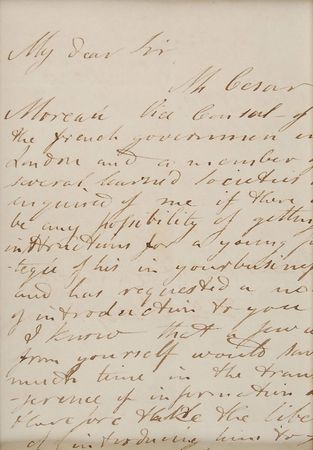 My dear Sir
Mr Cesar
Moreau Vice Consul of
the french governmen in
London and a member o
several learned societies
inquired of me if there
be any possibility of gettin
instructions for a young p
tegee of his in your busine
and has requested a n
of introduction to you
I know that a few w
from yourself would sav
much time in the tran
sference of information
therefore take the libe
of introducing him to y